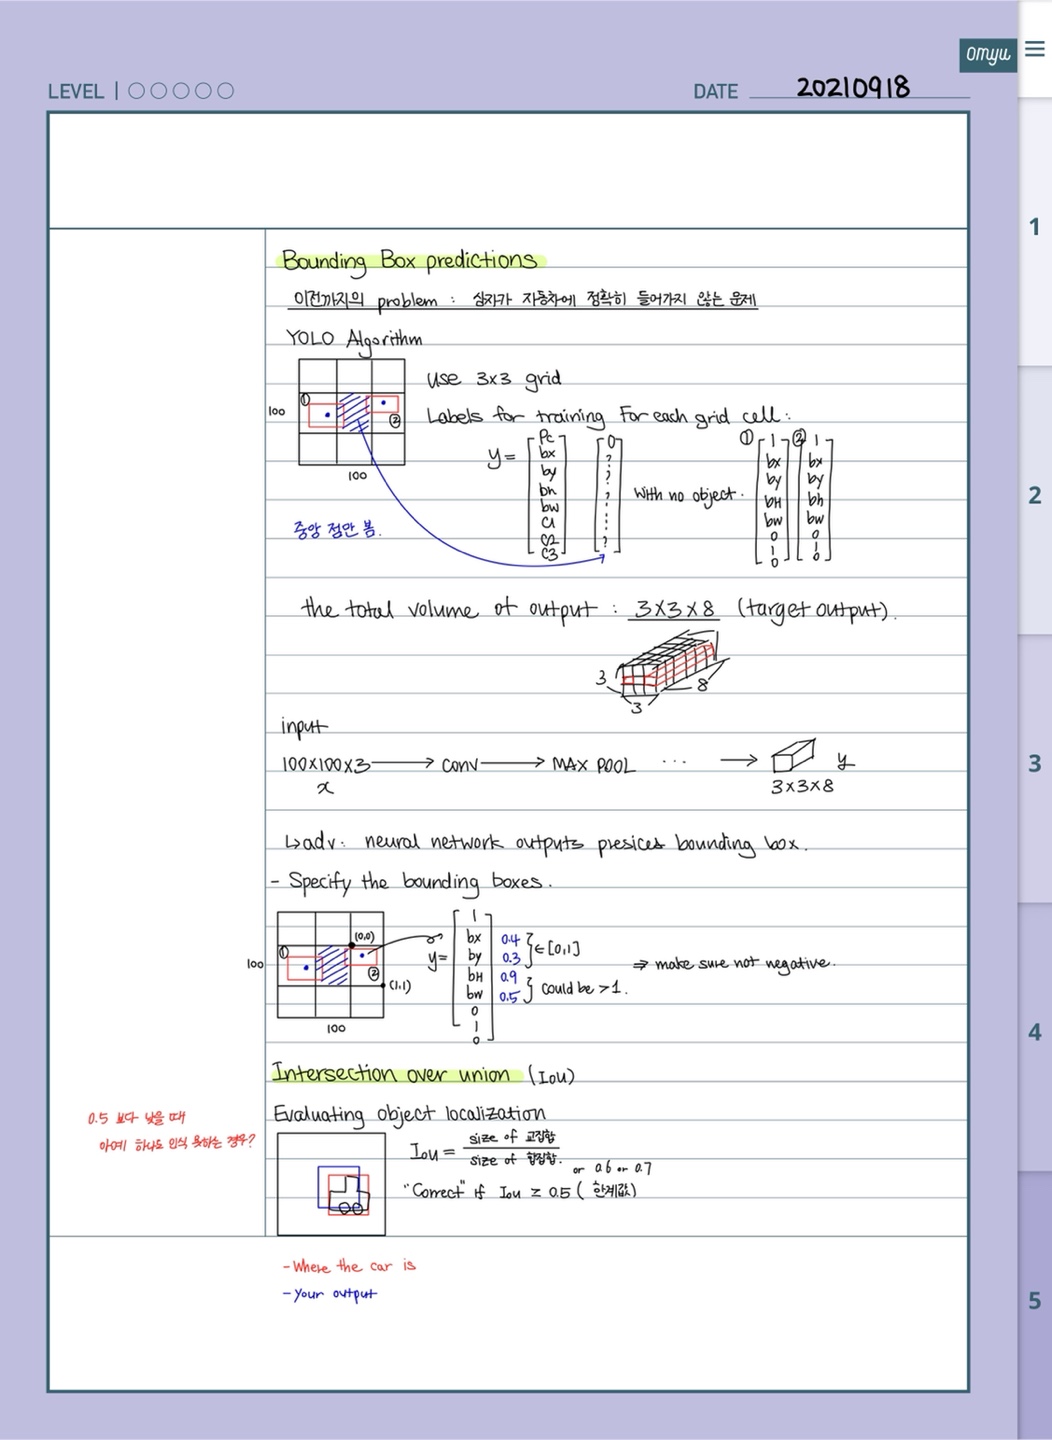 omyu
LEVEL | ○○○○○
DATE 20210918
1
2
3
4
5
Bounding Box predictions
이전까지의 problem : 상자가 자동차에 정확히 들어가지 않는 문제
YOLO Algorithm
① ②
100
100
use 3x3 grid
Labels for training For each grid cell:
y = [Pc bx by bh bw C1 C2 C3] [0 ? ? ? ... ?] with no object. ① [1 bx by bH bw 0 1 0] ② [1 bx by bh bw 0 1 0]
중앙 점만 봄.
the total volume of output : 3X3X8 (target output).
3
3
8
input
100x100x3 → conv → MAX POOL ... → y
x
3x3x8
↳adv: neural network outputs presices bounding box.
- Specify the bounding boxes.
① ② (0,0) (1,1)
100
100
y = [1 bx by bH bw 0 1 0]
0.4
0.3 } ∈ [0,1]
0.9
0.5 } could be >1.
⇒ make sure not negative.
Intersection over union (IoU)
Evaluating object localization
IoU = size of 교집합
size of 합집합.
"Correct" if IoU ≥ 0.5 ( 한계값)
or 0.6 or 0.7
0.5 보다 낮을 때
아예 하나도 인식 못하는 경우?
- Where the car is
- Your output